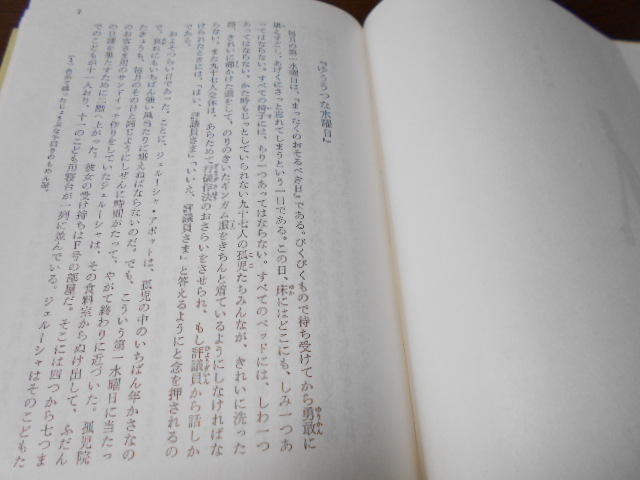 『ゆううつな水曜日』
毎月の第一水曜日は、『まったくのおそるべき日』である。びくびくもので待ち受けてから勇敢に
堪えすごし、あげくにさっと忘れてしまうという一日である。この日、床にはどこにも、しみ一つあ
ってはならない。すべての椅子には、ちり一つあってはならない。すべてのベッドには、しわ一つ
あってはならない。かた時もじっとしていられない九十七人の孤児たちみんなが、きれいに洗った
顔、きれいに櫛かけた頭をして、のりのきいたギンガム服をきちんと着ているようにしなければな
らない。また九十七人全体は、あらためて行儀作法のおさらいをさせられ、もし評議員から話しか
けられたときには、「はい、評議員さま」「いいえ、評議員さま」と答えるようにと念を押されるの
である。
およそつらい日であった。ことに、ジェルーシャ・アボットは、孤児の中のいちばん年かさなの
で、哀れにもいちばん強い風当たりに堪えねばならないのだ。でも、こういう第一水曜日に当たっ
たきょうも、毎月のその日と同じようにしぜんに時間がたって、やがて終わりに近づいた。孤児院
のお客さま用のサンドイッチ作りをしていたジェルーシャは、その食料室からぬけ出して、ふだん
の日課を果たすために二階へ上がった。彼女の受け持ちはF号の部屋だ。そこには四つから七つま
でのこどもが十一人おり、十一のこども用寝台が一列に並んでいる。ジェルーシャはそのこどもた